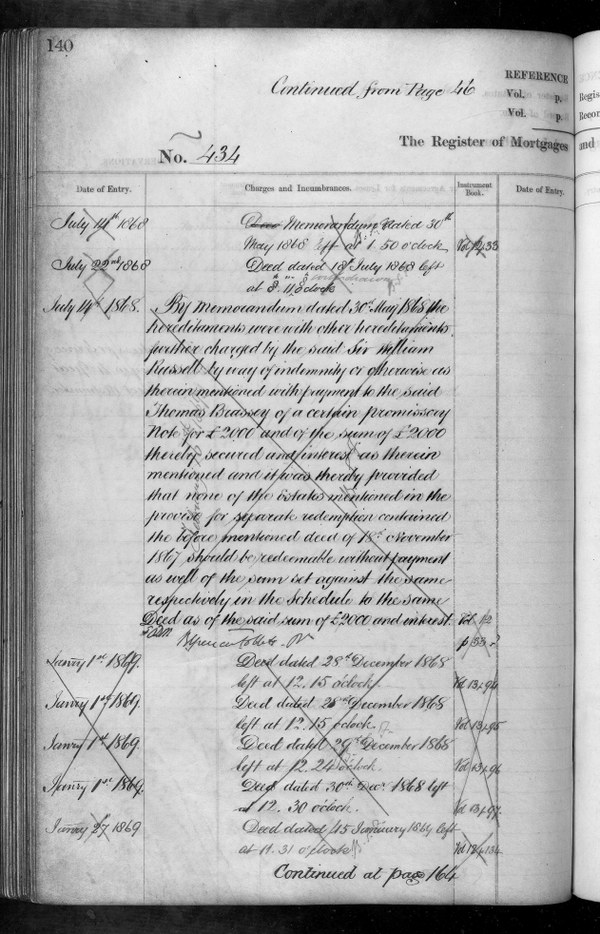 140
Continued from Page 46
REFERENCE
Vol. p.
Vol. p.
Regis
Recor
The Register of Mortgages
and
No. 434
Date of Entry.
Charges and Incumbrances.
Instrument Book.
Date of Entry.
July 14th 1868
Deed Memorandum dated 30th
May 1868 left at 1.50 o'clock
Vol 12 p 33
July 22nd 1868
Deed dated 18th July 1868 left
at o'clock
July 14th 1868.
By Memorandum dated 30th May 1868 the
hereditaments were with other hereditaments
further charged by the said Sir William
Russell by way of indemnity or otherwise as
therein mentioned with payment to the said
Thomas Brassey of a certain promissory
Note for £2000 and of the sum of £2000
thereby secured and interest as therein
mentioned and it was thereby provided
that none of the Estates mentioned in the
proviso for separate redemption contained
the before mentioned deed of 18th November
1867 should be redeemable without payment
as well of the sum set against the same
respectively in the Schedule to the same
Deed as of the said sum of £2000 and interest
Vol 12
p 33
Janry 1st 1869.
Deed dated 28th December 1868
left at 12.15 o'clock.
Vol 13 p 94
Janry 1st 1869.
Deed dated 28th December 1868
left at 12.15 o'clock.
Vol 13 p 95
Janry 1st 1869
Deed dated 29th December 1868
left at 12.24 o'clock
Vol 13 p 96
Janry 1st 1869.
Deed dated 30th Decr. 1868 left
at 12.30 o'clock.
Vol 13 p 97.
Janry 27 1869
Deed dated 15 January 1869 left
at 11.31 o'clock
Continued at page 164